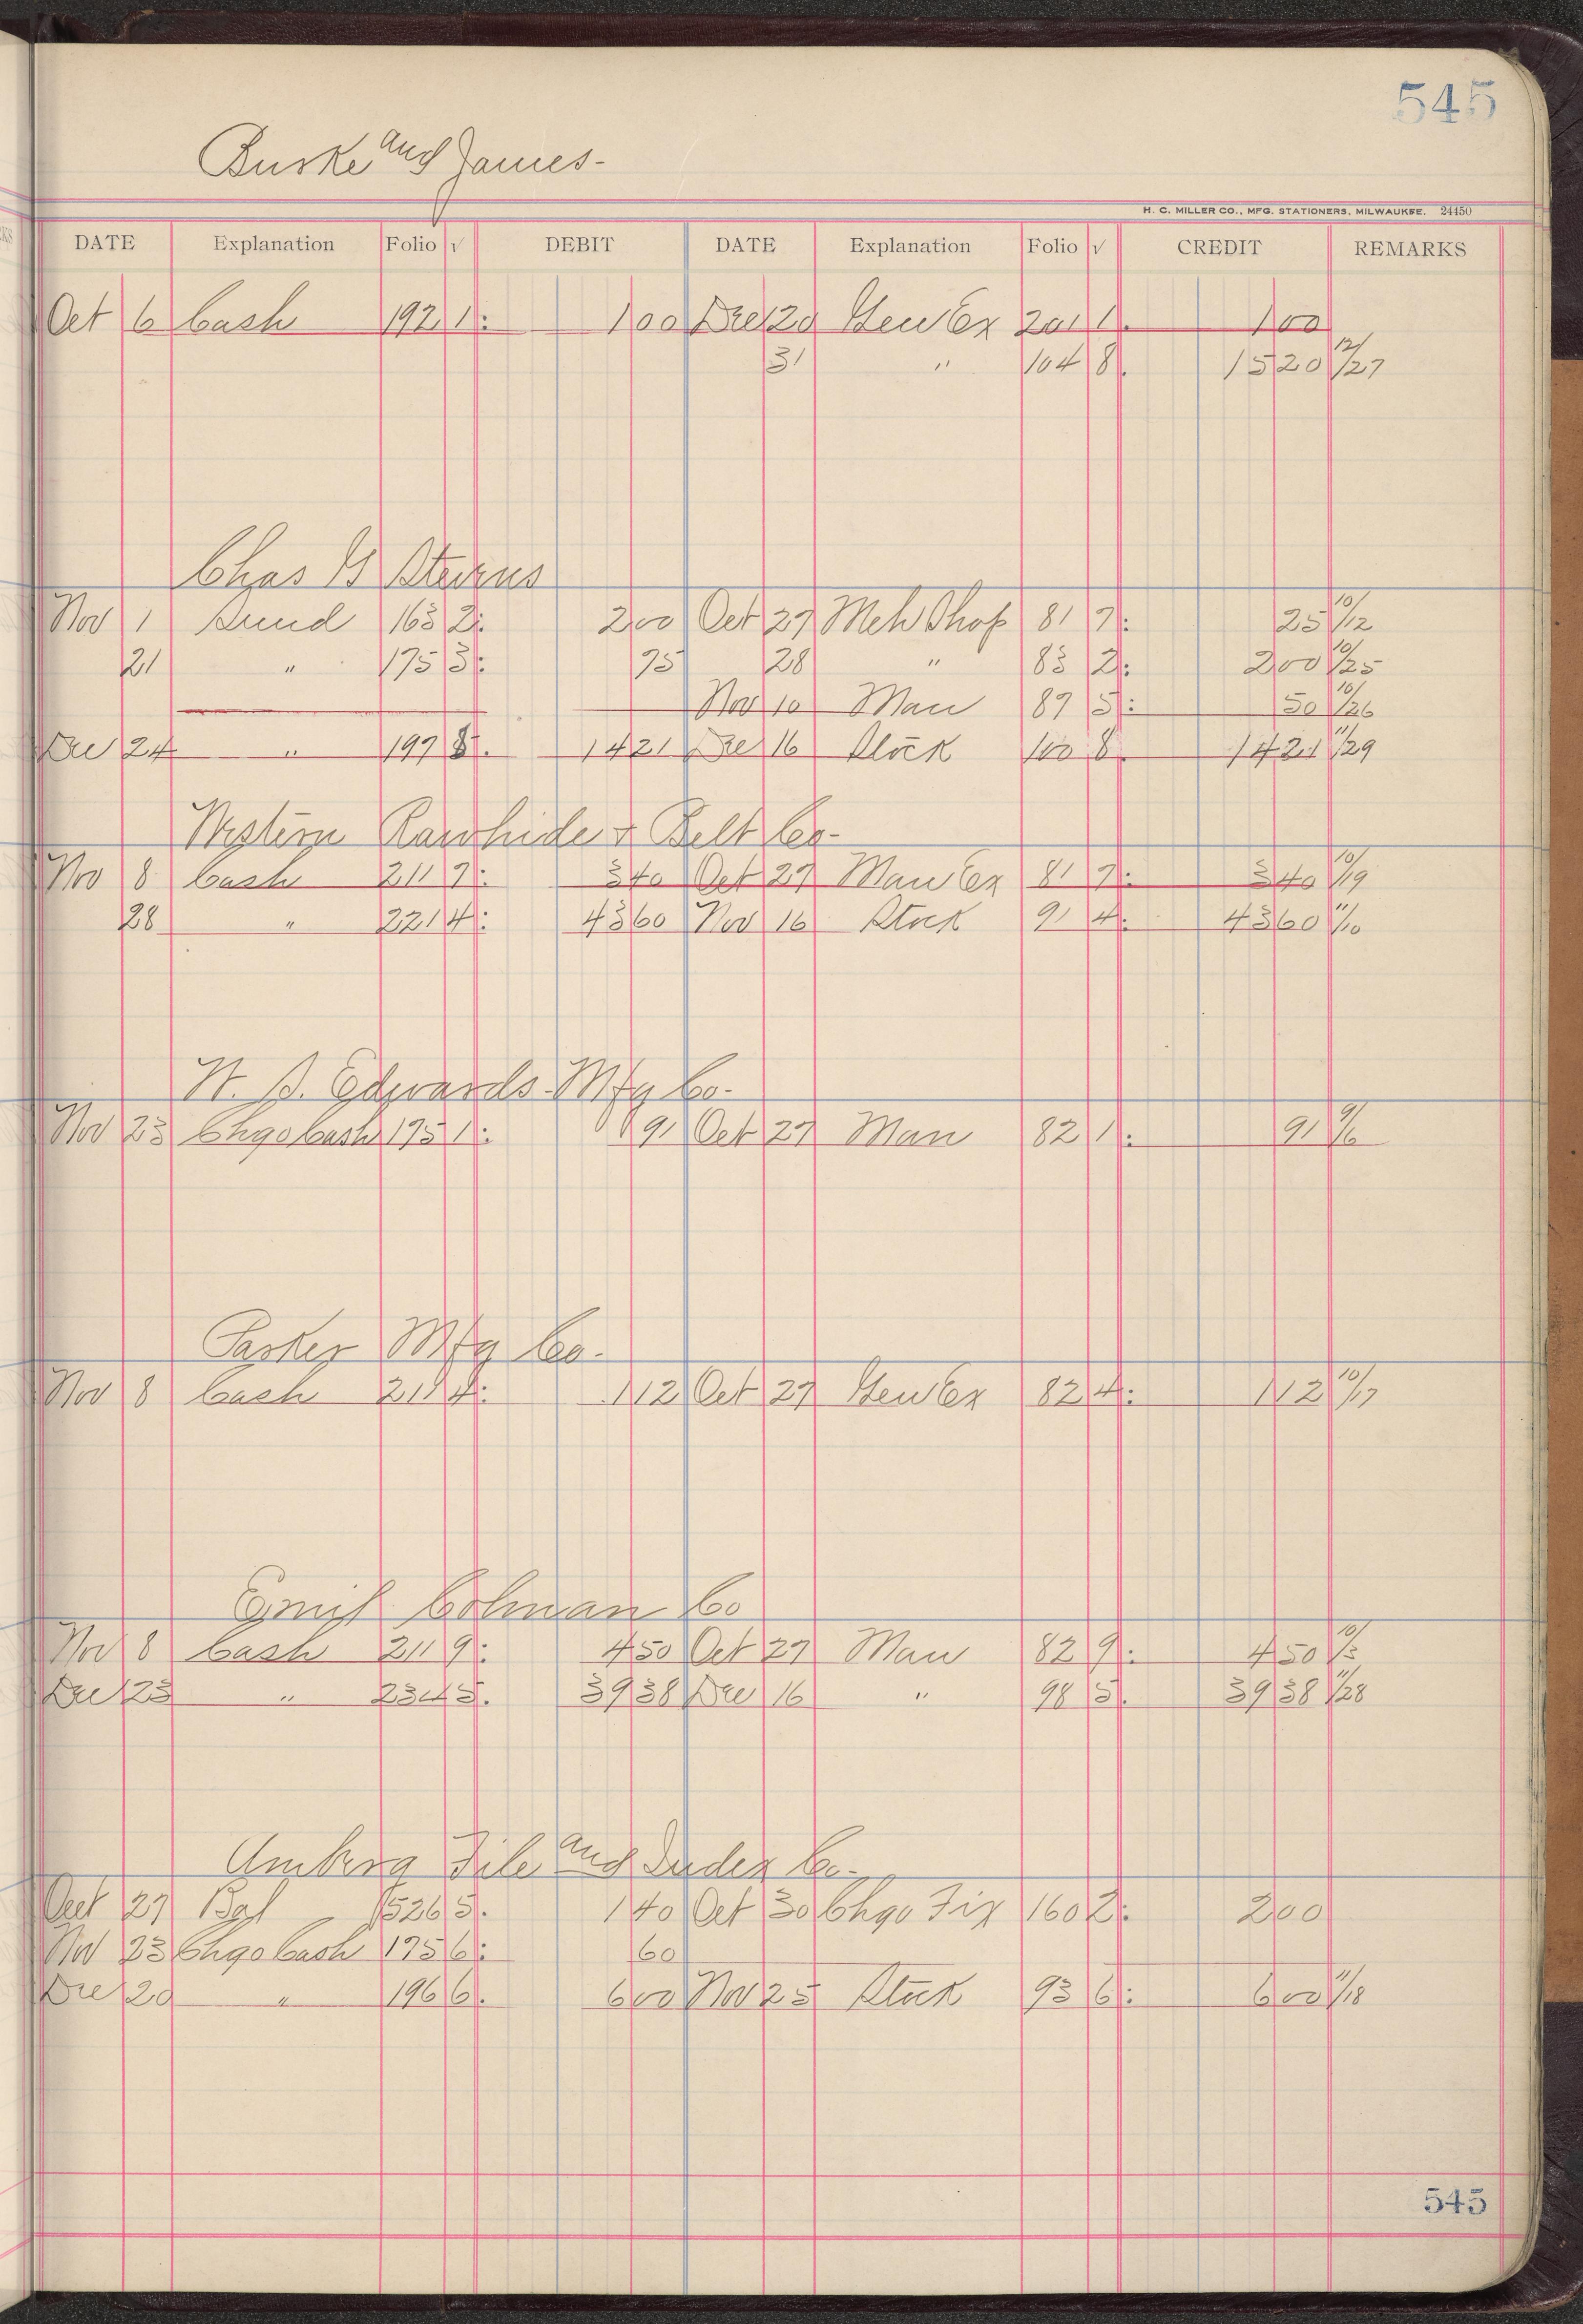 545
Burke and James-
H. C. MILLER CO., MFG. STATIONERS, MILWAUKEE. 24450
DATE Explanation Folio √ DEBIT DATE Explanation Folio √ CREDIT REMARKS
Oct 6 Cash 192 1 1 00 Dec 20 Gen Ex 201 1 1 00
31 " 104 8 15 20 12/27
Chas G Stevens
Nov 1 Sund 163 2 2 00 Oct 27 Meh Shop 81 7 25 10/12
21 " 175 3 75 28 " 83 2 2 00 10/25
Nov 10 Man 87 5 50 10/26
Dec 24 " 197 8 14 21 Dec 16 Stock 100 8 14 21 11/29
Western Rawhide & Belt Co-
Nov 8 Cash 211 7 3 40 Oct 27 Man Ex 81 7 3 40 10/19
28 " 221 4 43 60 Nov 16 Stock 91 4 43 60 11/10
W. S. Edwards Mfg Co.
Nov 23 Chgo Cash 175 1 91 Oct 27 Man 82 1 91 9/6
Parker Mfg Co.
Nov 8 Cash 211 4 1 12 Oct 27 Gen Ex 82 4 1 12 10/17
Emil Colman Co
Nov 8 Cash 211 9 4 50 Oct 27 Man 82 9 4 50 10/3
Dec 23 " 234 5 39 38 Dec 16 " 98 5 39 38 11/28
Amberg File and Index Co-
Oct 27 Bal 526 5 1 40 Oct 30 Chgo Fix 160 2 2 00
Nov 23 Chgo Cash 175 6 60
Dec 20 " 196 6 6 00 Nov 25 Stock 93 6 6 00 11/18
545